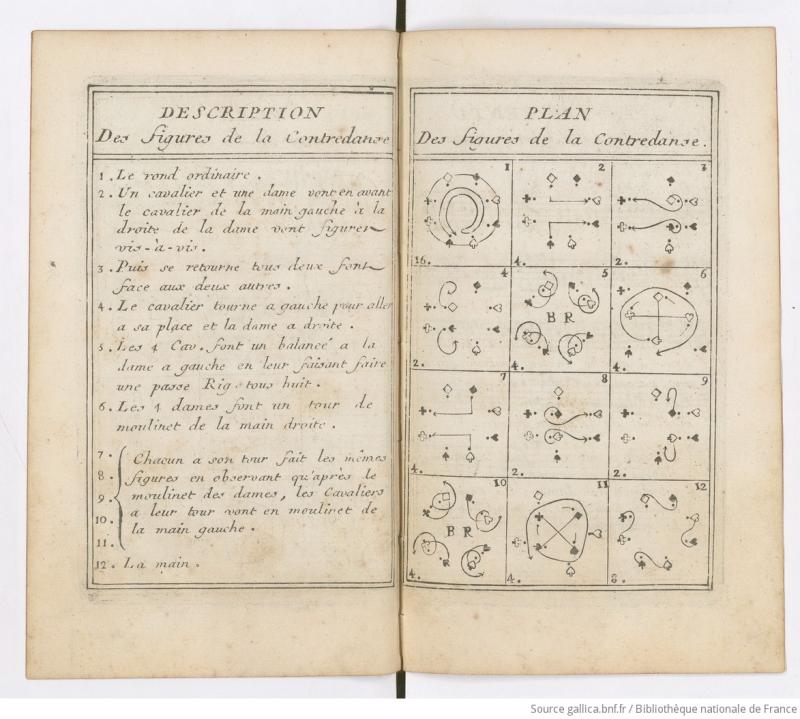 DESCRIPTION
Des figures de la Contredanse
1. Le rond ordinaire.
2. Un cavalier et une dame vont en avant
le cavalier de la main gauche à la
droite de la dame vont figurer
vis-à-vis.
3. Puis se retourne tous deux font
face aux deux autres.
4. Le cavalier tourne a gauche pour aller
a sa place et la dame a droite.
5. Les 4 Cav. font un balancé a la
dame a gauche en leur faisant faire
une passe Rig. tous huit.
6. Les 4 dames font un tour de
moulinet de la main droite.
7.
8.
9.
10.
11.
Chacun a son tour fait les mêmes
figures en observant qu'après le
moulinet des dames, les Cavaliers
a leur tour vont en moulinet de
la main gauche.
12. La main.
PLAN
Des figures de la Contredanse.
1
16.
2
4.
3
2.
4
2.
5
B R
4.
6
4.
7
4.
8
2.
9
2.
10
B R
4.
11
4.
12
8.
Source gallica.bnf.fr / Bibliothèque nationale de France